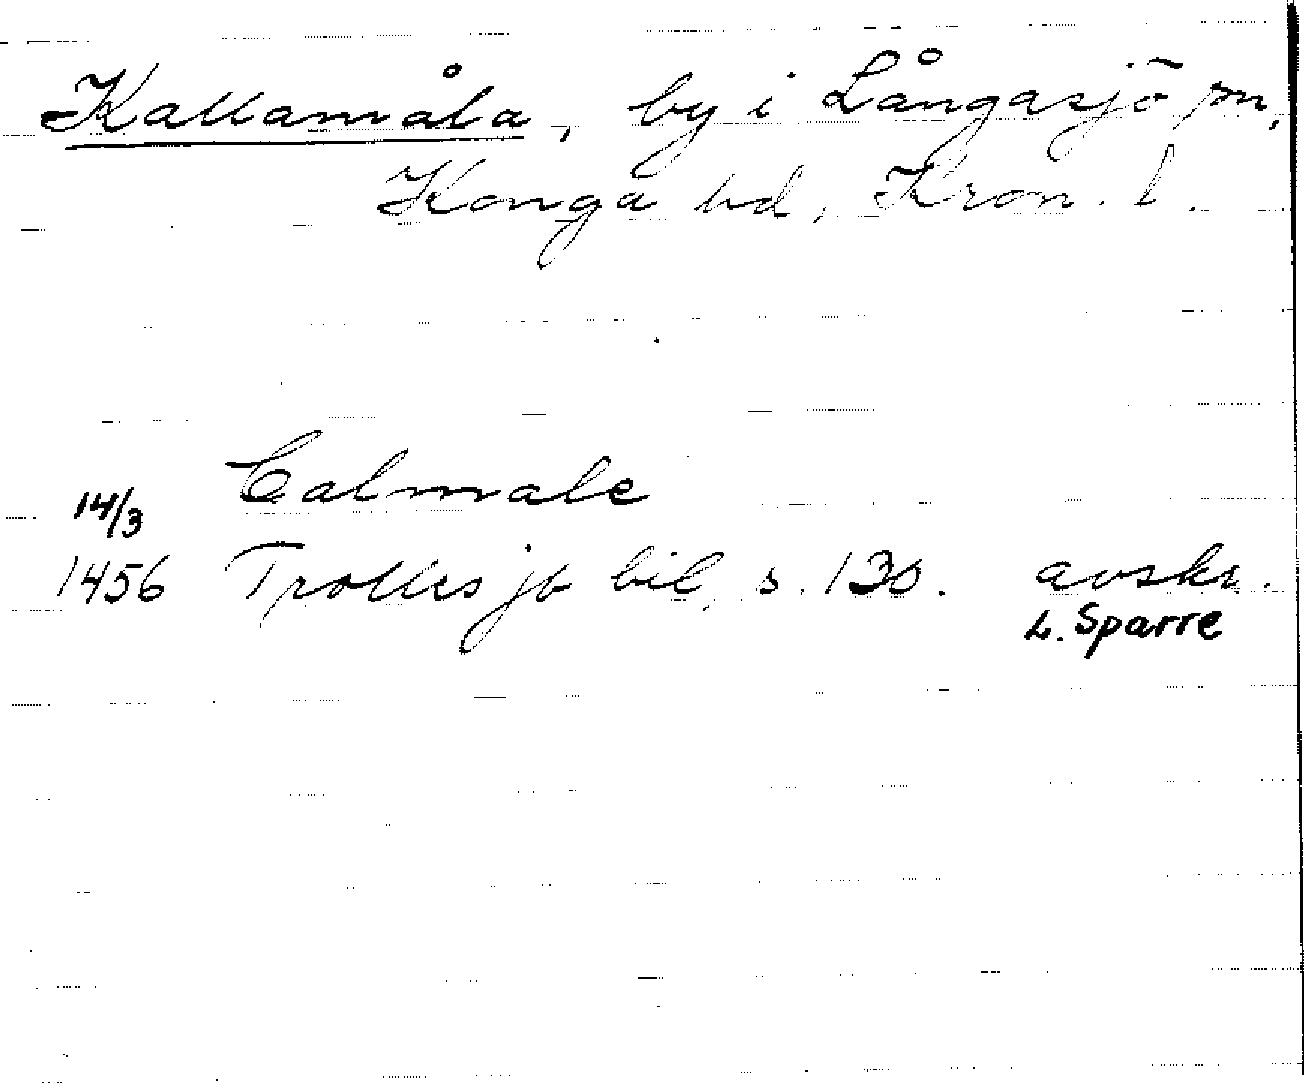 Kallamåla, by i Långasjö sn,
Konga hd, Kron. l.
Calmale
14/3
1456 Trolles jb bil, s. 130. avskr.
L. Sparre